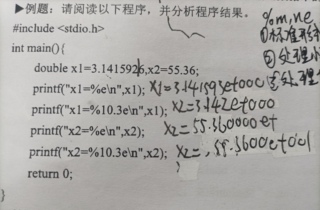 ▶例题：请阅读以下程序，并分析程序结果。
#include <stdio.h>
%m,ne
int main(){
①标准形式
double x1=3.1415926,x2=55.36;
②处理小
printf("x1=%e\n",x1); x1=3.141593et000 ③处理
printf("x1=%10.3e\n",x1); x2=3.142et000
printf("x2=%e\n",x2); x2=55.360000et
printf("x2=%10.3e\n",x2); x2=
return 0;
}